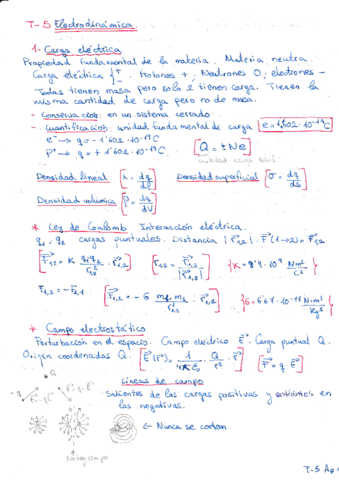 T-5 Electrodinámica.
1- Carga eléctrica
Propiedad fundamental de la materia. Materia neutra.
Carga eléctrica { + - . Protones +, Neutrones 0, electrones -
Todas tienen masa pero solo 2 tienen carga. Tienen la
misma cantidad de carga pero no de masa.
- Conservación: en un sistema cerrado
- Cuantificación: unidad fundamental de carga [e = 1'602·10⁻¹⁹C]
e⁻ → q = -1'602·10⁻¹⁹C [Q = ± Ne]
p⁺ → q = +1'602·10⁻¹⁹C cantidad carga total
Densidad lineal [λ = dq/dl] Densidad superficial [σ = dq/ds]
Densidad volumica [ρ = dq/dV]
* Ley de Coulomb Interacción eléctrica.
q₁, q₂ cargas puntuales. Distancia |r⃗₁,₂| F⃗(1→2) = F⃗₁,₂
[F⃗₁,₂ = K q₁q₂/r²₁,₂ · r̂₁,₂] [r̂₁,₂ = r⃗₁,₂/|r⃗₁,₂|] {K = 9'9·10⁹ N·m²/C²}
F⃗₁,₂ = -F⃗₂,₁ [F⃗₁,₂ = -G m₁·m₂/r²₁,₂ · r̂₁,₂] {G = 6'67·10⁻¹¹ N·m²/Kg²}
* Campo electrostático
Perturbación en el espacio. Campo electrico E⃗. Carga puntual Q.
Origen coordenadas Q. [E⃗(r⃗) = 1/4πε₀ · Q/r² · r̂] [F⃗ = q E⃗]
Líneas de campo
Salientes de las cargas positivas y entrantes en
las negativas.
← Nunca se cortan.
T-5 Ap